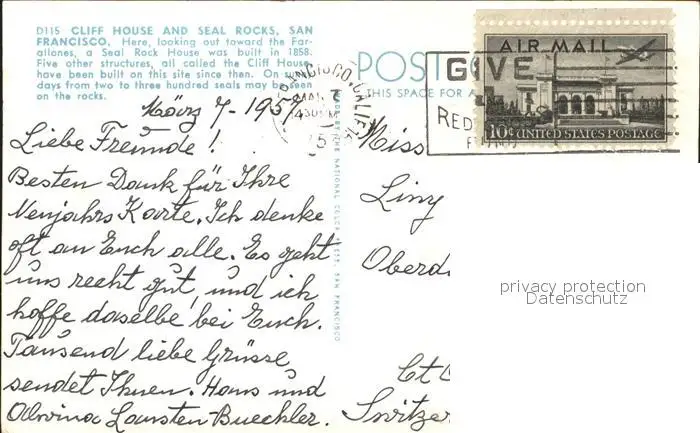 D115 CLIFF HOUSE AND SEAL ROCKS, SAN
FRANCISCO. Here, looking out toward the Far-
allones, a Seal Rock House was built in 1858.
Five other structures, all called the Cliff House
have been built on this site since then. On su
days from two to three hundred seals may be seen
on the rocks.
März 7-195
Liebe Freunde!
Besten Dank für Ihre
Neujahrs Karte. Ich denke
oft an Euch alle. Es geht
uns recht gut, und ich
hoffe daselbe bei Euch.
Tausend liebe Grüsse,
sendet Ihnen. Hans und
Advina Lansten-Buechler.
POST
THIS SPACE FOR A
GIVE
RED
AIR MAIL
10¢ UNITED STATES POSTAGE
CALIF.
Miss
Liny
Oberd
Ct
Switzer
privacy protection
Datenschutz